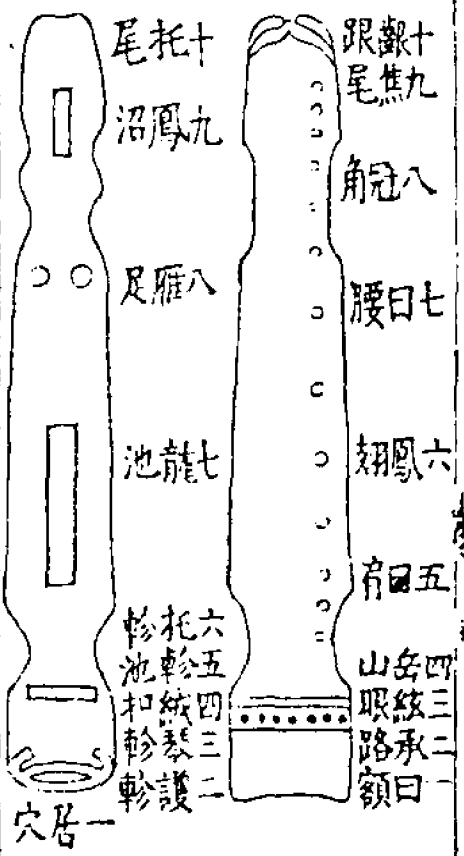 十
九焦尾
八冠角
七曰腰
六鳳翅
五曰肩
四岳山
三絃眼
二承路
一曰額
十托尾
九鳳沼
八雁足
七龍池
六托軫
五軫池
四絨扣
三琴軫
二護軫
一居穴